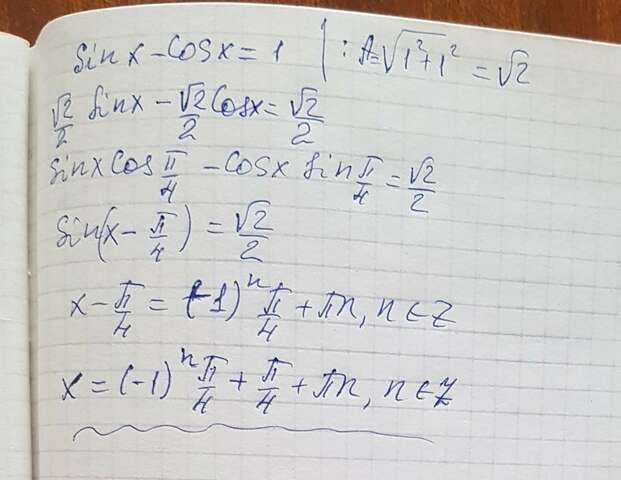 sin x - cos x = 1 | : A = √(1² + 1²) = √2
√2/2 sin x - √2/2 cos x = √2/2
sin x cos π/4 - cos x sin π/4 = √2/2
sin(x - π/4) = √2/2
x - π/4 = (-1)ⁿ π/4 + πn, n ∈ Z
x = (-1)ⁿ π/4 + π/4 + πn, n ∈ Z